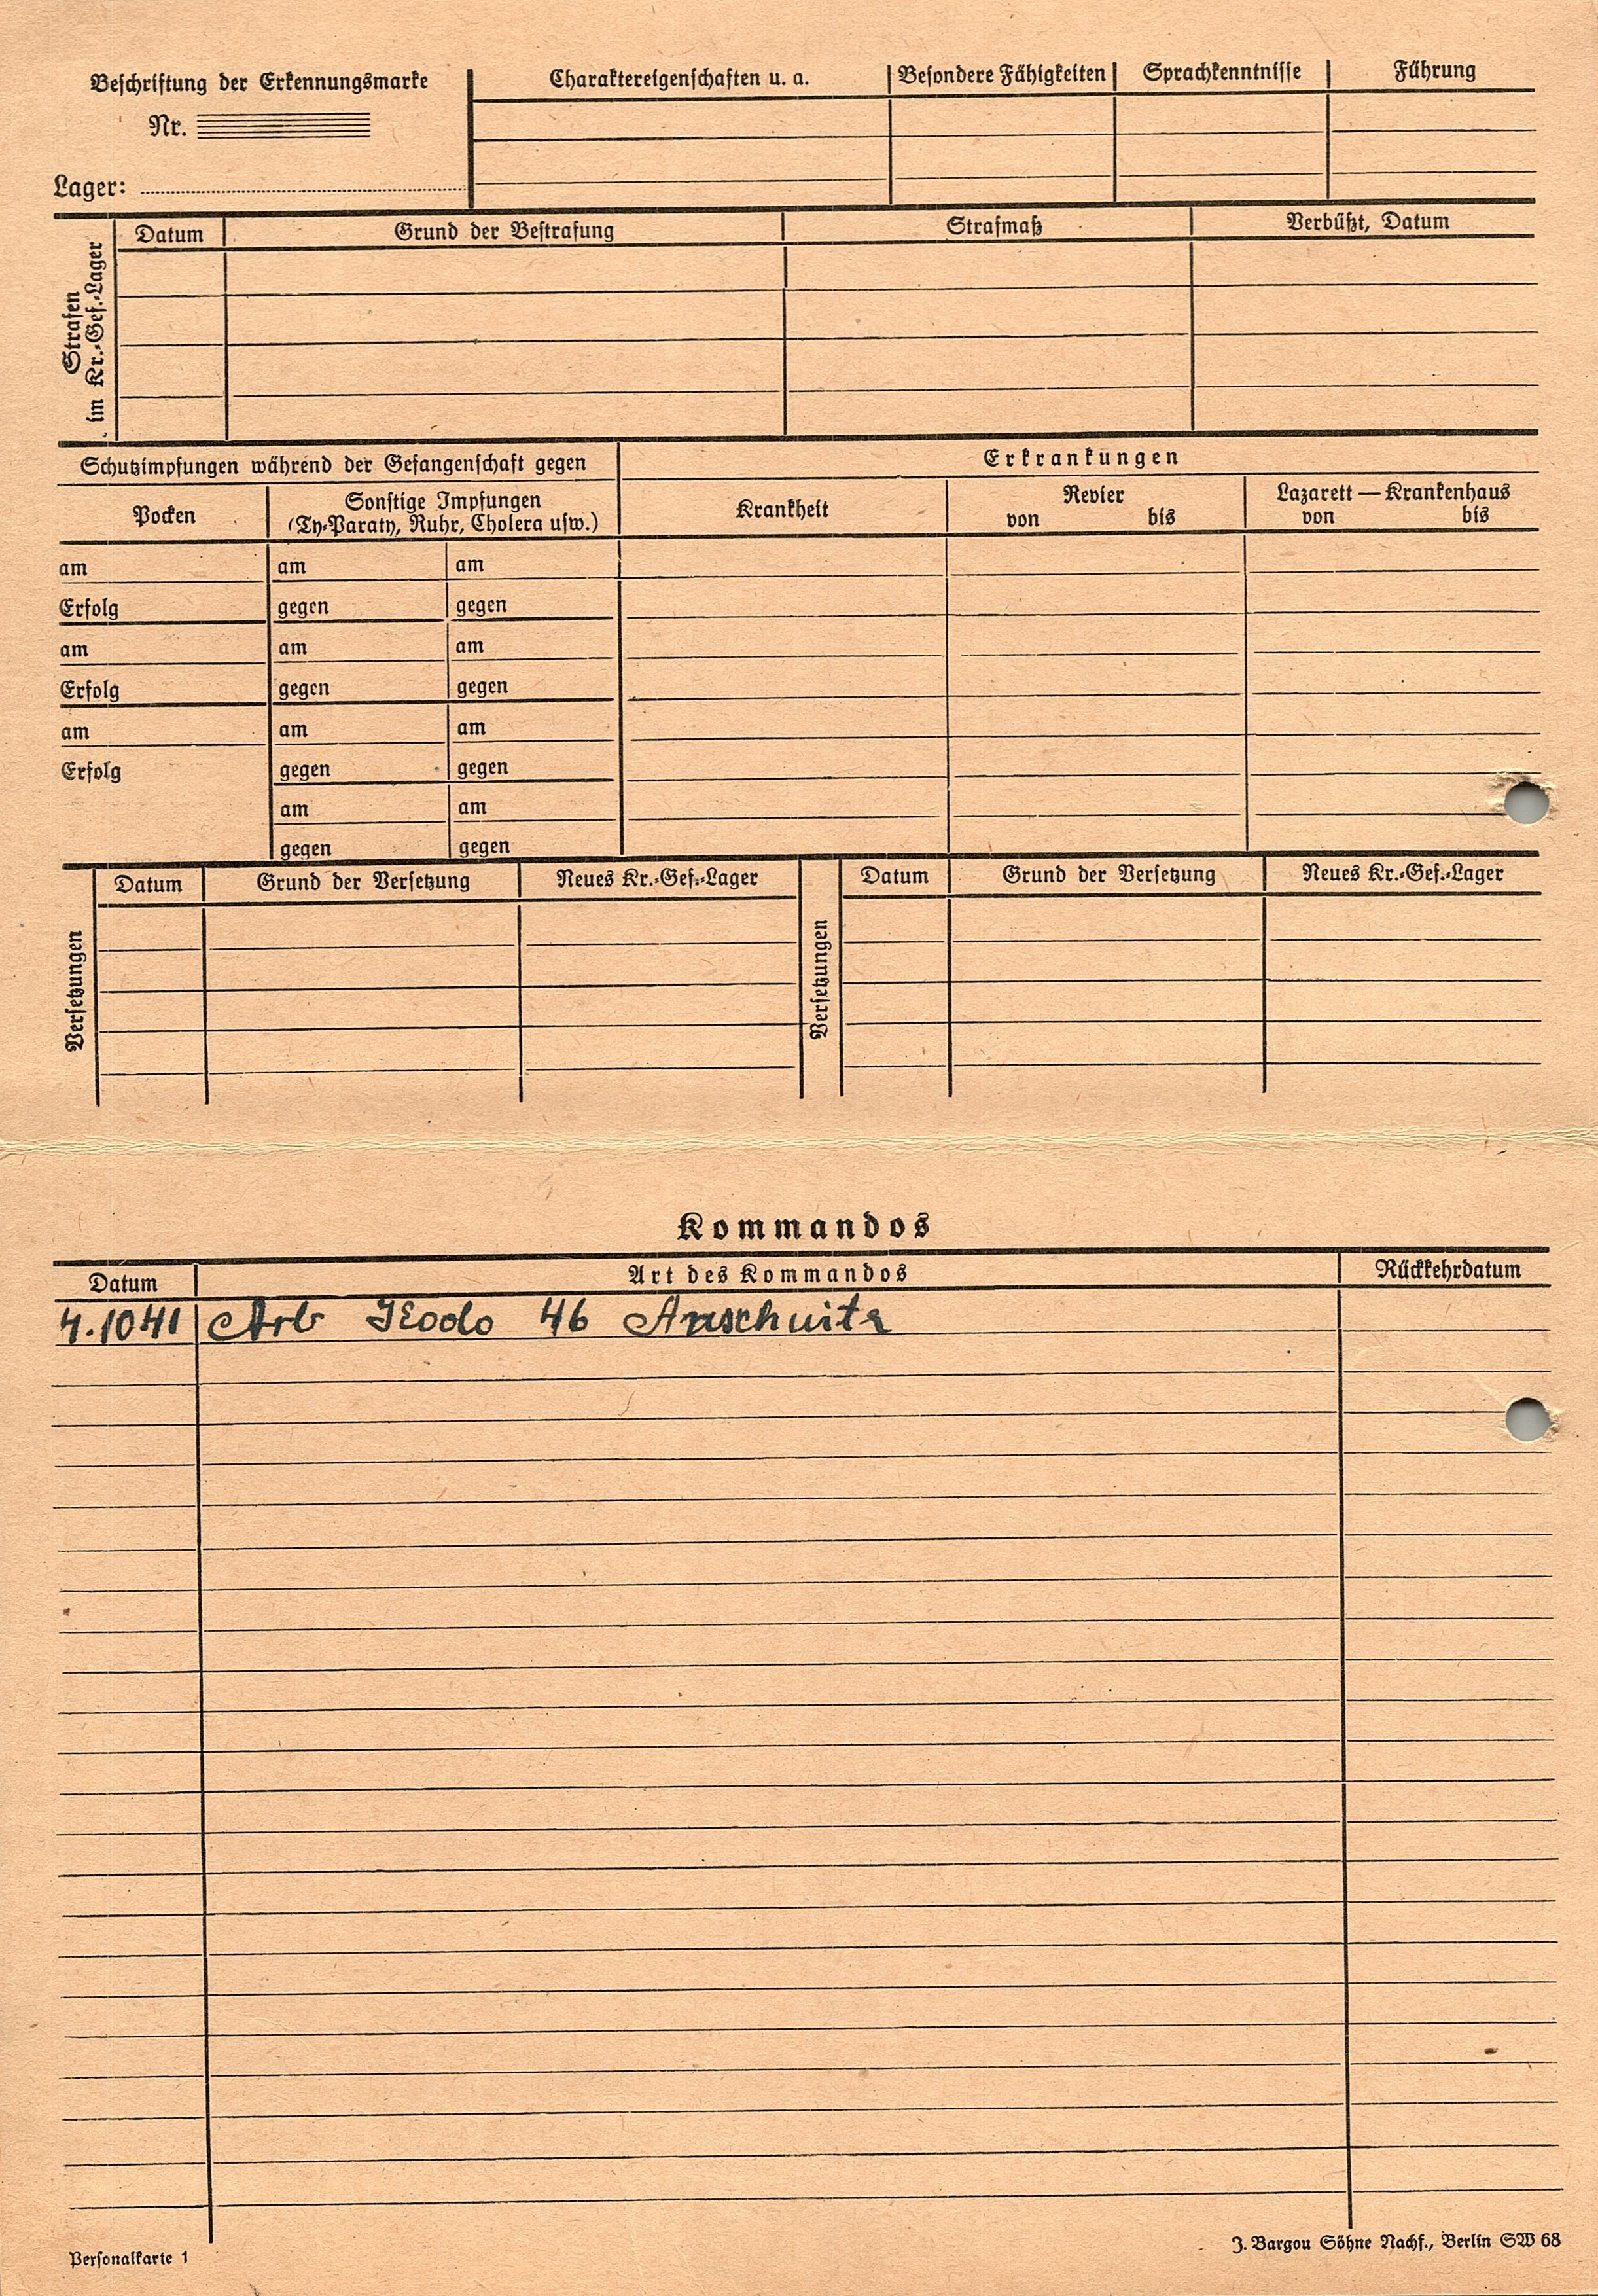 Beschriftung der Erkennungsmarke
Nr.
Lager:
Charaktereigenschaften u. a.
Besondere Fähigkeiten
Sprachkenntnisse
Führung
Strafen
im Kr.-Gef.-Lager
Datum
Grund der Bestrafung
Strafmaß
Verbüßt, Datum
Schutzimpfungen während der Gefangenschaft gegen
Erkrankungen
Pocken
Sonstige Impfungen
(Ty-Paraty, Ruhr, Cholera usw.)
Krankheit
Revier
von bis
Lazarett — Krankenhaus
von bis
am am am
Erfolg gegen gegen
am am am
Erfolg gegen gegen
am am am
Erfolg gegen gegen
am am
gegen gegen
Versetzungen
Datum
Grund der Versetzung
Neues Kr.-Gef.-Lager
Versetzungen
Datum
Grund der Versetzung
Neues Kr.-Gef.-Lager
Kommandos
Datum
Art des Kommandos
Rückkehrdatum
4.1041 Arb Kodo 46 Auschwitz
Personalkarte 1
J. Bargou Söhne Nachf., Berlin SW 68